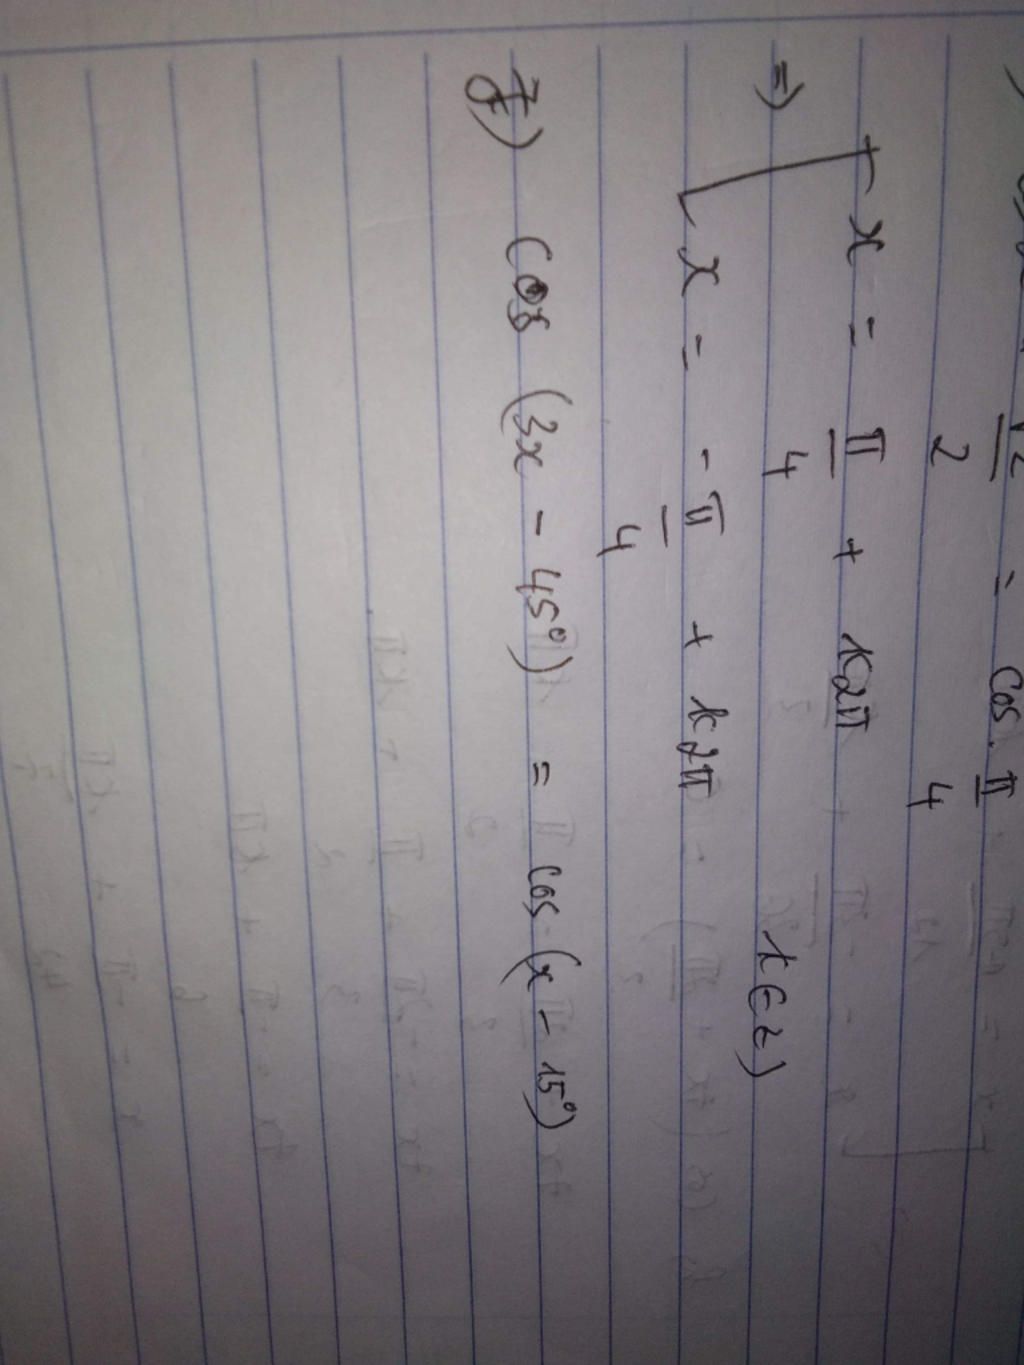 √2/2 = cos. π/4
=> [ x = π/4 + k2π
[ x = -π/4 + k2π k∈Z)
f) cos (3x - 45°) = cos (x - 15°)